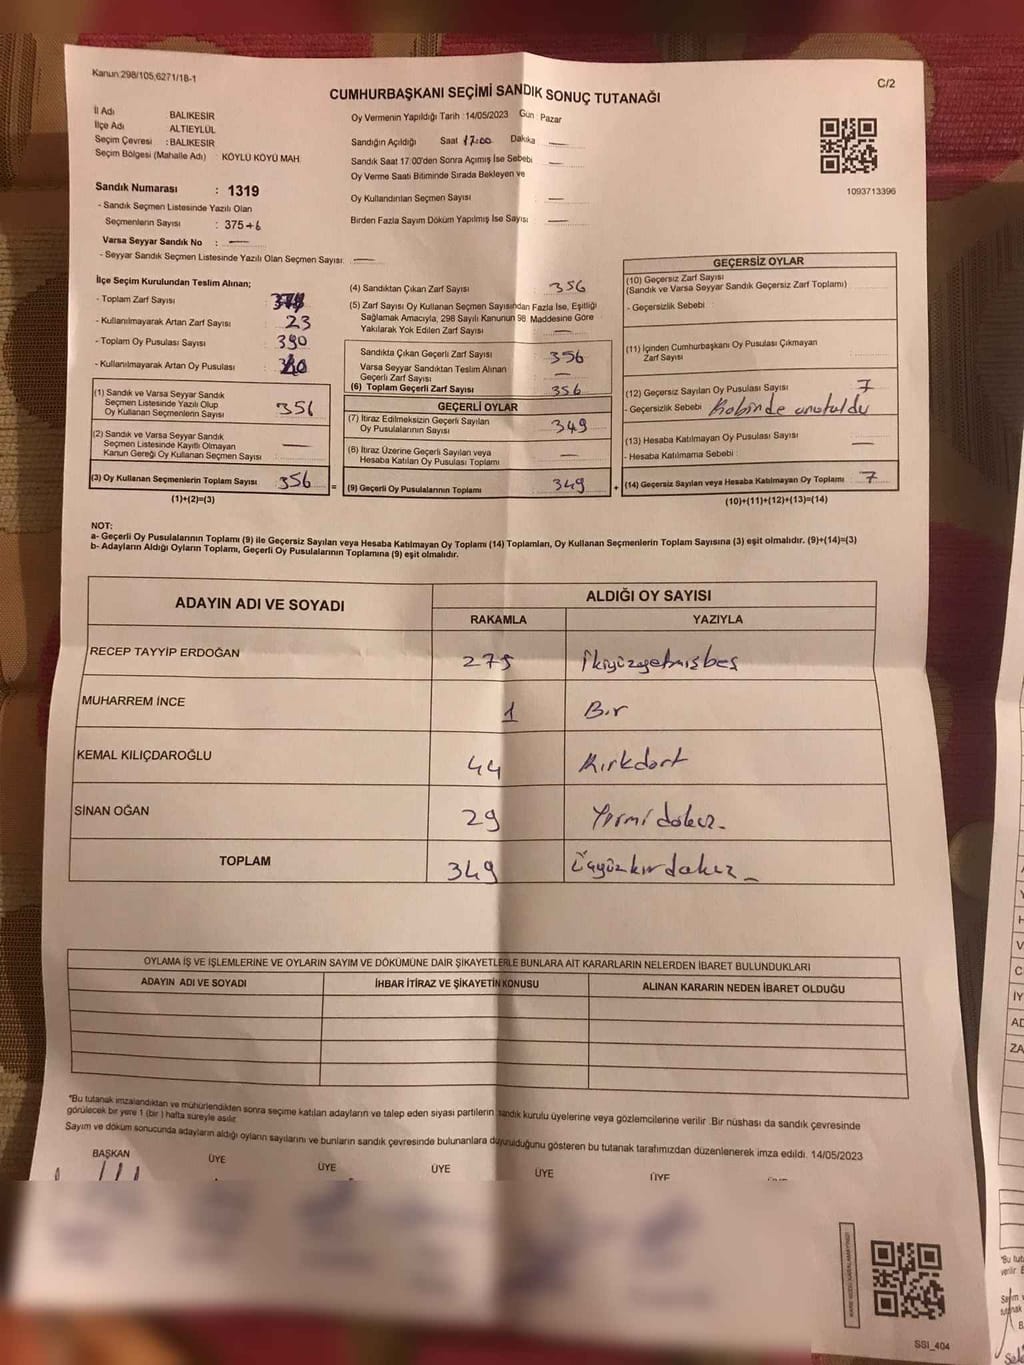 Kanun 298/105,6271/18-1
C/2
CUMHURBAŞKANI SEÇİMİ SANDIK SONUÇ TUTANAĞI
İl Adı BALIKESİR
İlçe Adı ALTIEYLÜL
Seçim Çevresi : BALIKESİR
Seçim Bölgesi (Mahalle Adı) : KÖYLÜ KÖYÜ MAH
Sandık Numarası : 1319
- Sandık Seçmen Listesinde Yazılı Olan
Seçmenlerin Sayısı : 375+6
Varsa Seyyar Sandık No : —
- Seyyar Sandık Seçmen Listesinde Yazılı Olan Seçmen Sayısı: —
Oy Vermenin Yapıldığı Tarih : 14/05/2023 Gün : Pazar
Sandığın Açıldığı Saat 17:00 Dakika —
Sandık Saat 17:00'den Sonra Açımış İse Sebebi —
Oy Verme Saati Bitiminde Sırada Bekleyen ve
Oy Kullandırılan Seçmen Sayısı —
Birden Fazla Sayım Döküm Yapılmış İse Sayısı —
1093713396
İlçe Seçim Kurulundan Teslim Alınan;
- Toplam Zarf Sayısı :
- Kullanılmayarak Artan Zarf Sayısı : 23
- Toplam Oy Pusulası Sayısı : 390
- Kullanılmayarak Artan Oy Pusulası :
(1) Sandık ve Varsa Seyyar Sandık
Seçmen Listesinde Yazılı Olup
Oy Kullanan Seçmenlerin Sayısı : 356
(2) Sandık ve Varsa Seyyar Sandık
Seçmen Listesinde Kayıtlı Olmayan
Kanun Gereği Oy Kullanan Seçmen Sayısı : —
(3) Oy Kullanan Seçmenlerin Toplam Sayısı : 356
(1)+(2)=(3)
(4) Sandıktan Çıkan Zarf Sayısı : 356
(5) Zarf Sayısı Oy Kullanan Seçmen Sayısından Fazla İse, Eşitliği
Sağlamak Amacıyla, 298 Sayılı Kanunun 98. Maddesine Göre
Yakılarak Yok Edilen Zarf Sayısı : —
Sandıkta Çıkan Geçerli Zarf Sayısı : 356
Varsa Seyyar Sandıktan Teslim Alınan
Geçerli Zarf Sayısı : —
(6) Toplam Geçerli Zarf Sayısı : 356
GEÇERLİ OYLAR
(7) İtiraz Edilmeksizin Geçerli Sayılan
Oy Pusulalarının Sayısı : 349
(8) İtiraz Üzerine Geçerli Sayılan veya
Hesaba Katılan Oy Pusulası Toplamı : —
= (9) Geçerli Oy Pusulalarının Toplamı : 349
GEÇERSİZ OYLAR
(10) Geçersiz Zarf Sayısı
(Sandık ve Varsa Seyyar Sandık Geçersiz Zarf Toplamı) :
- Geçersizlik Sebebi :
(11) İçinden Cumhurbaşkanı Oy Pusulası Çıkmayan
Zarf Sayısı :
(12) Geçersiz Sayılan Oy Pusulası Sayısı : 7
- Geçersizlik Sebebi : Kabinde unutuldu
(13) Hesaba Katılmayan Oy Pusulası Sayısı : —
- Hesaba Katılmama Sebebi :
+ (14) Geçersiz Sayılan veya Hesaba Katılmayan Oy Toplamı : 7
(10)+(11)+(12)+(13)=(14)
NOT:
a- Geçerli Oy Pusulalarının Toplamı (9) ile Geçersiz Sayılan veya Hesaba Katılmayan Oy Toplamı (14) Toplamları, Oy Kullanan Seçmenlerin Toplam Sayısına (3) eşit olmalıdır. (9)+(14)=(3)
b- Adayların Aldığı Oyların Toplamı, Geçerli Oy Pusulalarının Toplamına (9) eşit olmalıdır.
ADAYIN ADI VE SOYADI ALDIĞI OY SAYISI
RAKAMLA YAZIYLA
RECEP TAYYİP ERDOĞAN 275 İkiyüzyetmişbeş
MUHARREM İNCE 1 Bir
KEMAL KILIÇDAROĞLU 44 Kırkdört
SİNAN OĞAN 29 Yirmidokuz
TOPLAM 349 Üçyüzkırkdokuz
OYLAMA İŞ VE İŞLEMLERİNE VE OYLARIN SAYIM VE DÖKÜMÜNE DAİR ŞİKAYETLERLE BUNLARA AİT KARARLARIN NELERDEN İBARET BULUNDUKLARI
ADAYIN ADI VE SOYADI İHBAR İTİRAZ VE ŞİKAYETİN KONUSU ALINAN KARARIN NEDEN İBARET OLDUĞU
*Bu tutanak imzalandıktan ve mühürlendikten sonra seçime katılan adayların ve talep eden siyasi partilerin sandık kurulu üyelerine veya gözlemcilerine verilir. Bir nüshası da sandık çevresinde
görülecek bir yere 1 (bir) hafta süreyle asılır.
Sayım ve döküm sonucunda adayların aldığı oyların sayılarını ve bunların sandık çevresinde bulunanlara duyurulduğunu gösteren bu tutanak tarafımızdan düzenlenerek imza edildi. 14/05/2023
BAŞKAN ÜYE ÜYE ÜYE ÜYE ÜYE
SSI_404